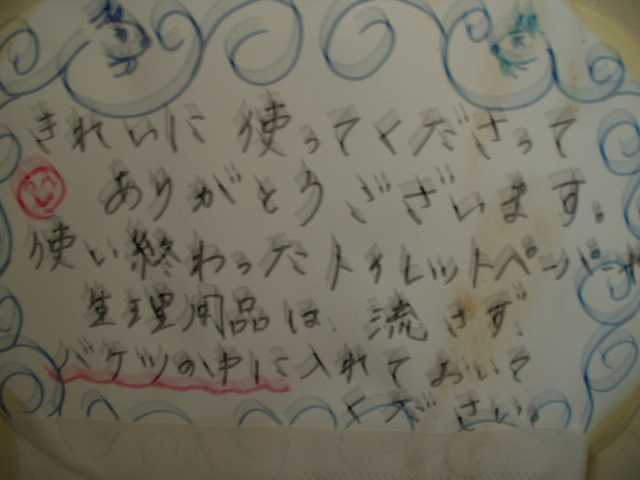 きれいに 使ってくださって
ありがとうございます。
使い終わったトイレットペーパーや
生理用品は、流さず、
バケツの中に入れておいて
ください。